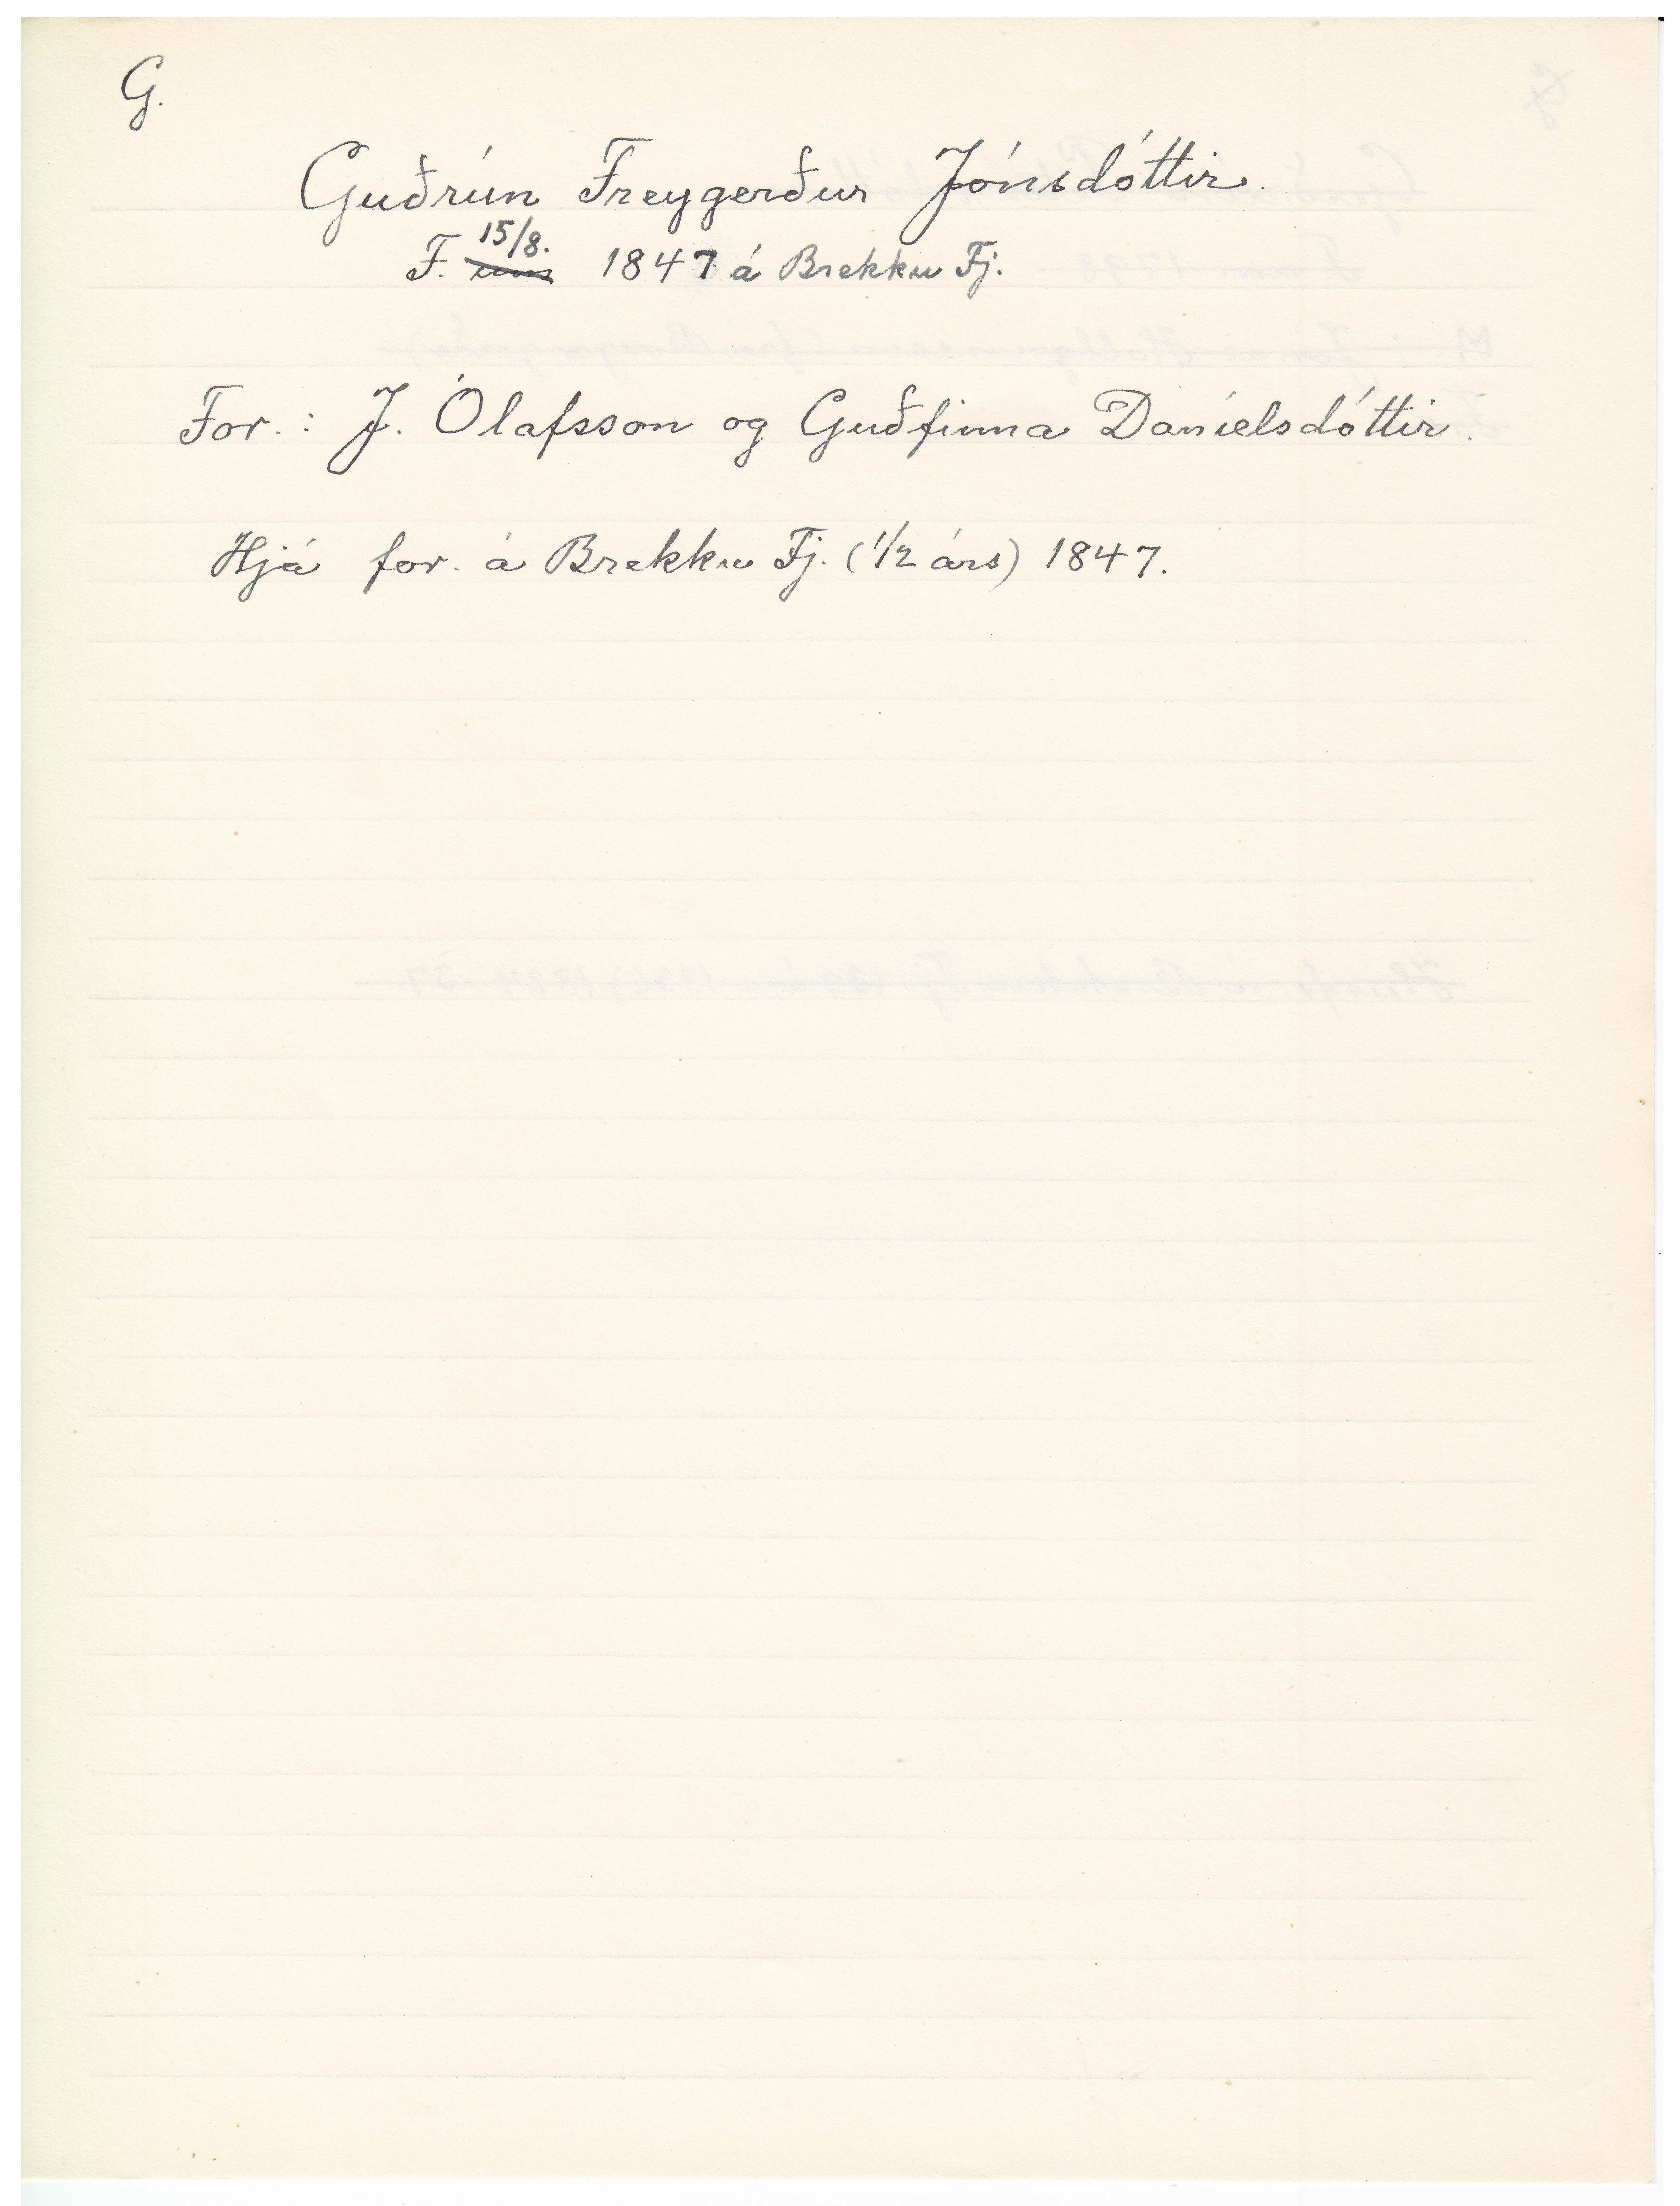 G.
Guðrún Freygerður Jónsdóttir.
15/8.
F. um 1847 á Brekku Fj.
For.: J. Ólafsson og Guðfinna Daníelsdóttir.
Hjá for. á Brekku Fj. (1/2 árs) 1847.